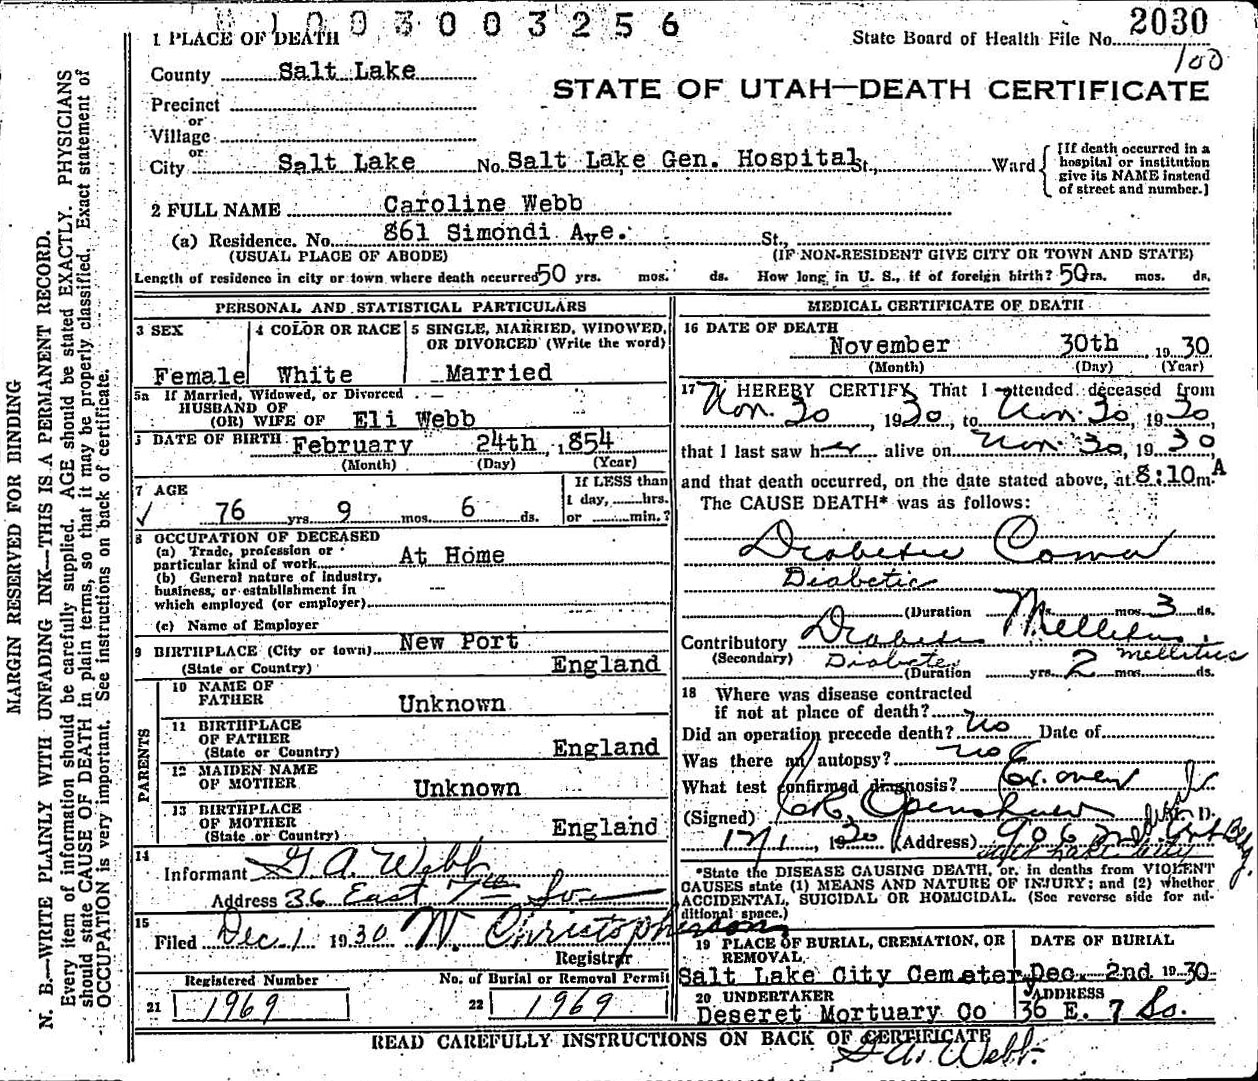 1003003256
2030
State Board of Health File No.
100
1 PLACE OF DEATH
County Salt Lake
STATE OF UTAH—DEATH CERTIFICATE
Precinct
or
Village
or
City Salt Lake No. Salt Lake Gen. Hospital St., Ward
[If death occurred in a
hospital or institution
give its NAME instead
of street and number.]
2 FULL NAME Caroline Webb
(a) Residence. No. 861 Simondi Ave. St.,
(USUAL PLACE OF ABODE) (IF NON-RESIDENT GIVE CITY OR TOWN AND STATE)
Length of residence in city or town where death occurred 50 yrs. mos. ds. How long in U. S., if of foreign birth? 50 rs. mos. ds.
PERSONAL AND STATISTICAL PARTICULARS
3 SEX
Female
4 COLOR OR RACE
White
5 SINGLE, MARRIED, WIDOWED,
OR DIVORCED (Write the word)
Married
5a If Married, Widowed, or Divorced
HUSBAND OF
(OR) WIFE OF Eli Webb
DATE OF BIRTH February 24th, 1854
(Month) (Day) (Year)
7 AGE
76 yrs. 9 mos. 6 ds.
If LESS than
1 day, hrs.
or min.?
8 OCCUPATION OF DECEASED
(a) Trade, profession or
particular kind of work At Home
(b) General nature of industry,
business, or establishment in
which employed (or employer)
(c) Name of Employer
9 BIRTHPLACE (City or town) New Port
(State or Country) England
PARENTS
10 NAME OF
FATHER Unknown
11 BIRTHPLACE
OF FATHER
(State or Country) England
12 MAIDEN NAME
OF MOTHER Unknown
13 BIRTHPLACE
OF MOTHER
(State or Country) England
14
Informant G. A. Webb
Address 36 East 7th So
15
Filed Dec 1 1930 W. Christopherson
Registrar
Registered Number
21 1969
No. of Burial or Removal Permit
22 1969
MEDICAL CERTIFICATE OF DEATH
16 DATE OF DEATH
November 30th, 1930
(Month) (Day) (Year)
17 I HEREBY CERTIFY, That I attended deceased from
Nov. 30, 1930, to Nov. 30, 1930,
that I last saw her alive on Nov. 30, 1930
and that death occurred, on the date stated above, at 8:10 A m.
The CAUSE DEATH* was as follows:
Diabetic Coma
Diabetic
(Duration mos. 3 ds.
Contributory Diabetes Mellitus.
(Secondary) Diabetes mellitus
(Duration yrs. 2 mos. ds.
18 Where was disease contracted
if not at place of death?
Did an operation precede death? no Date of
Was there an autopsy? no
What test confirmed diagnosis?
(Signed) Openshaw M. D.
12/1, 1930 (Address) 906 Bldg.
Salt Lake City
*State the DISEASE CAUSING DEATH, or, in deaths from VIOLENT
CAUSES state (1) MEANS AND NATURE OF INJURY; and (2) whether
ACCIDENTAL, SUICIDAL OR HOMICIDAL. (See reverse side for ad-
ditional space.)
19 PLACE OF BURIAL, CREMATION, OR
REMOVAL
Salt Lake City Cemetery
DATE OF BURIAL
Dec. 2nd 1930
20 UNDERTAKER
Deseret Mortuary Co
ADDRESS
36 E. 7 So.
READ CAREFULLY INSTRUCTIONS ON BACK OF CERTIFICATE
G. A. Webb.
MARGIN RESERVED FOR BINDING
N. B.—WRITE PLAINLY WITH UNFADING INK—THIS IS A PERMANENT RECORD.
Every item of information should be carefully supplied. AGE should be stated EXACTLY. PHYSICIANS
should state CAUSE OF DEATH in plain terms, so that it may be properly classified. Exact statement of
OCCUPATION is very important. See instructions on back of certificate.